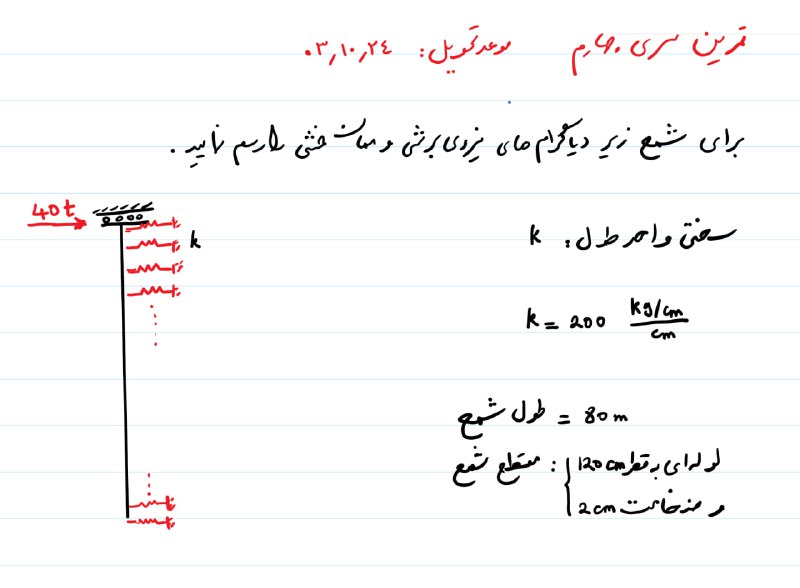 تمرین سری چهارم موعد تحویل: ۰۳٫۱۰٫۲۴
برای شمع زیر دیاگرام های نیروی برشی و ممان خمشی را رسم نمایید.
40t
k
سختی واحد طول: k
k = 200 kg/cm / cm
طول شمع = 80m
مقطع شمع: { لوله‌ای به قطر 120cm
و ضخامت 2cm